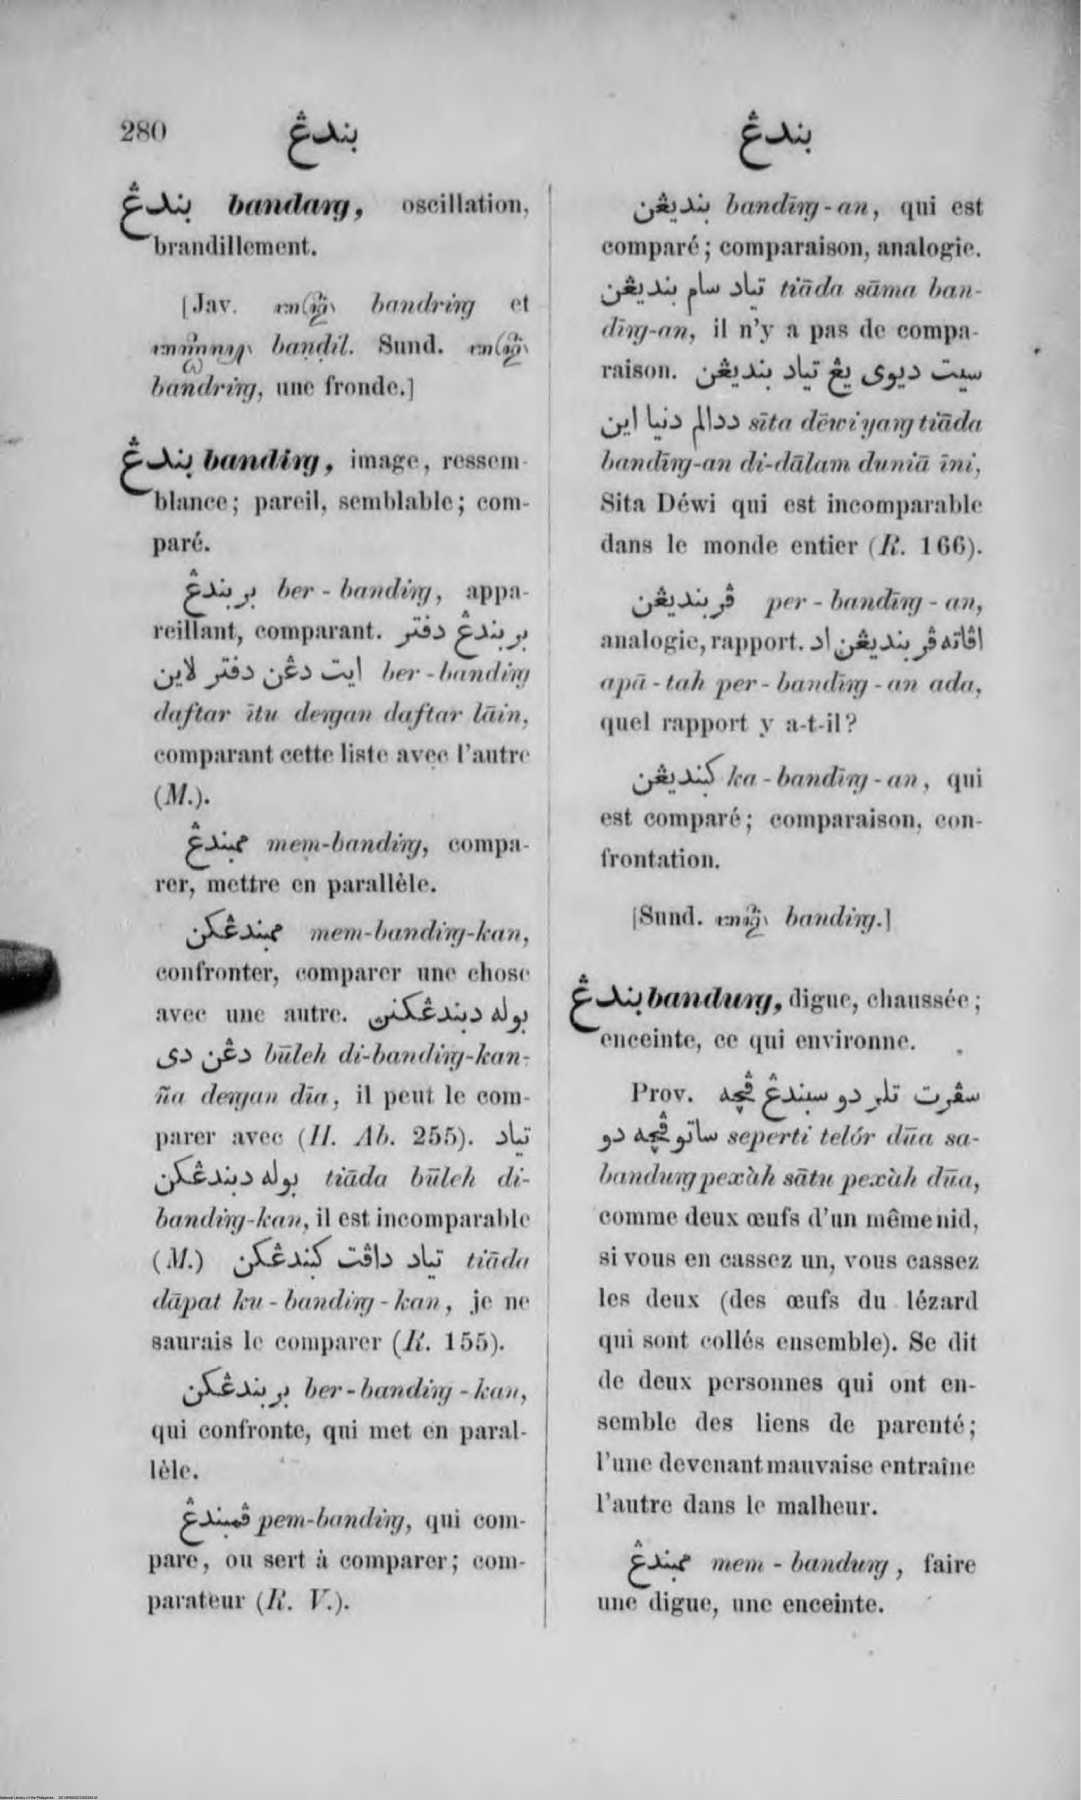 280 بندڠ بندڠ
بندڠ bandaṅg, oscillation,
brandillement.
[Jav. bandriṅg et
banḍil. Sund.
bandriṅg, une fronde.]
بندڠ bandiṅg, image, ressem-
blance; pareil, semblable; com-
paré.
بربندڠ ber-bandiṅg, appa-
reillant, comparant. بربندڠ دفتر
ايت دڠن دفتر لاين ber-bandiṅg
daftar ītu deṅgan daftar lāin,
comparant cette liste avec l'autre
(M.).
ممبندڠ mem-bandiṅg, compa-
rer, mettre en parallèle.
ممبندڠكن mem-bandiṅg-kan,
confronter, comparer une chose
avec une autre. بوله دبندڠكنڽ
دڠن دى būleh di-bandiṅg-kan-
ña deṅgan dīa, il peut le com-
parer avec (H. Ab. 255). تياد
بوله دبندڠكن tiāda būleh di-
bandiṅg-kan, il est incomparable
(M.) تياد داڤت كبندڠكن tiāda
dāpat ku-bandiṅg-kan, je ne
saurais le comparer (R. 155).
بربندڠكن ber-bandiṅg-kan,
qui confronte, qui met en paral-
lèle.
ڤمبندڠ pem-bandiṅg, qui com-
pare, ou sert à comparer; com-
parateur (R. V.).
بنديڠن bandīṅg-an, qui est
comparé; comparaison, analogie.
تياد سام بنديڠن tiāda sāma ban-
dīṅg-an, il n'y a pas de compa-
raison. سيت ديوى يڠ تياد بنديڠن
ددالم دنيا اين sīta dēwi yaṅg tiāda
bandīṅg-an di-dālam duniā īni,
Sita Déwi qui est incomparable
dans le monde entier (R. 166).
ڤربنديڠن per-bandīṅg-an,
analogie, rapport. اڤاته ڤربنديڠن اد
apā-tah per-bandīṅg-an ada,
quel rapport y a-t-il?
كبنديڠن ka-bandīṅg-an, qui
est comparé; comparaison, con-
frontation.
[Sund. bandiṅg.]
بندڠ banduṅg, digue, chaussée;
enceinte, ce qui environne.
Prov. سڤرت تلر دو سبندڠ ڤچه
ساتو ڤچه دو seperti telór dūa sa-
banduṅg peχàh sātu peχàh dūa,
comme deux œufs d'un même nid,
si vous en cassez un, vous cassez
les deux (des œufs du lézard
qui sont collés ensemble). Se dit
de deux personnes qui ont en-
semble des liens de parenté;
l'une devenant mauvaise entraîne
l'autre dans le malheur.
ممبندڠ mem-banduṅg, faire
une digue, une enceinte.